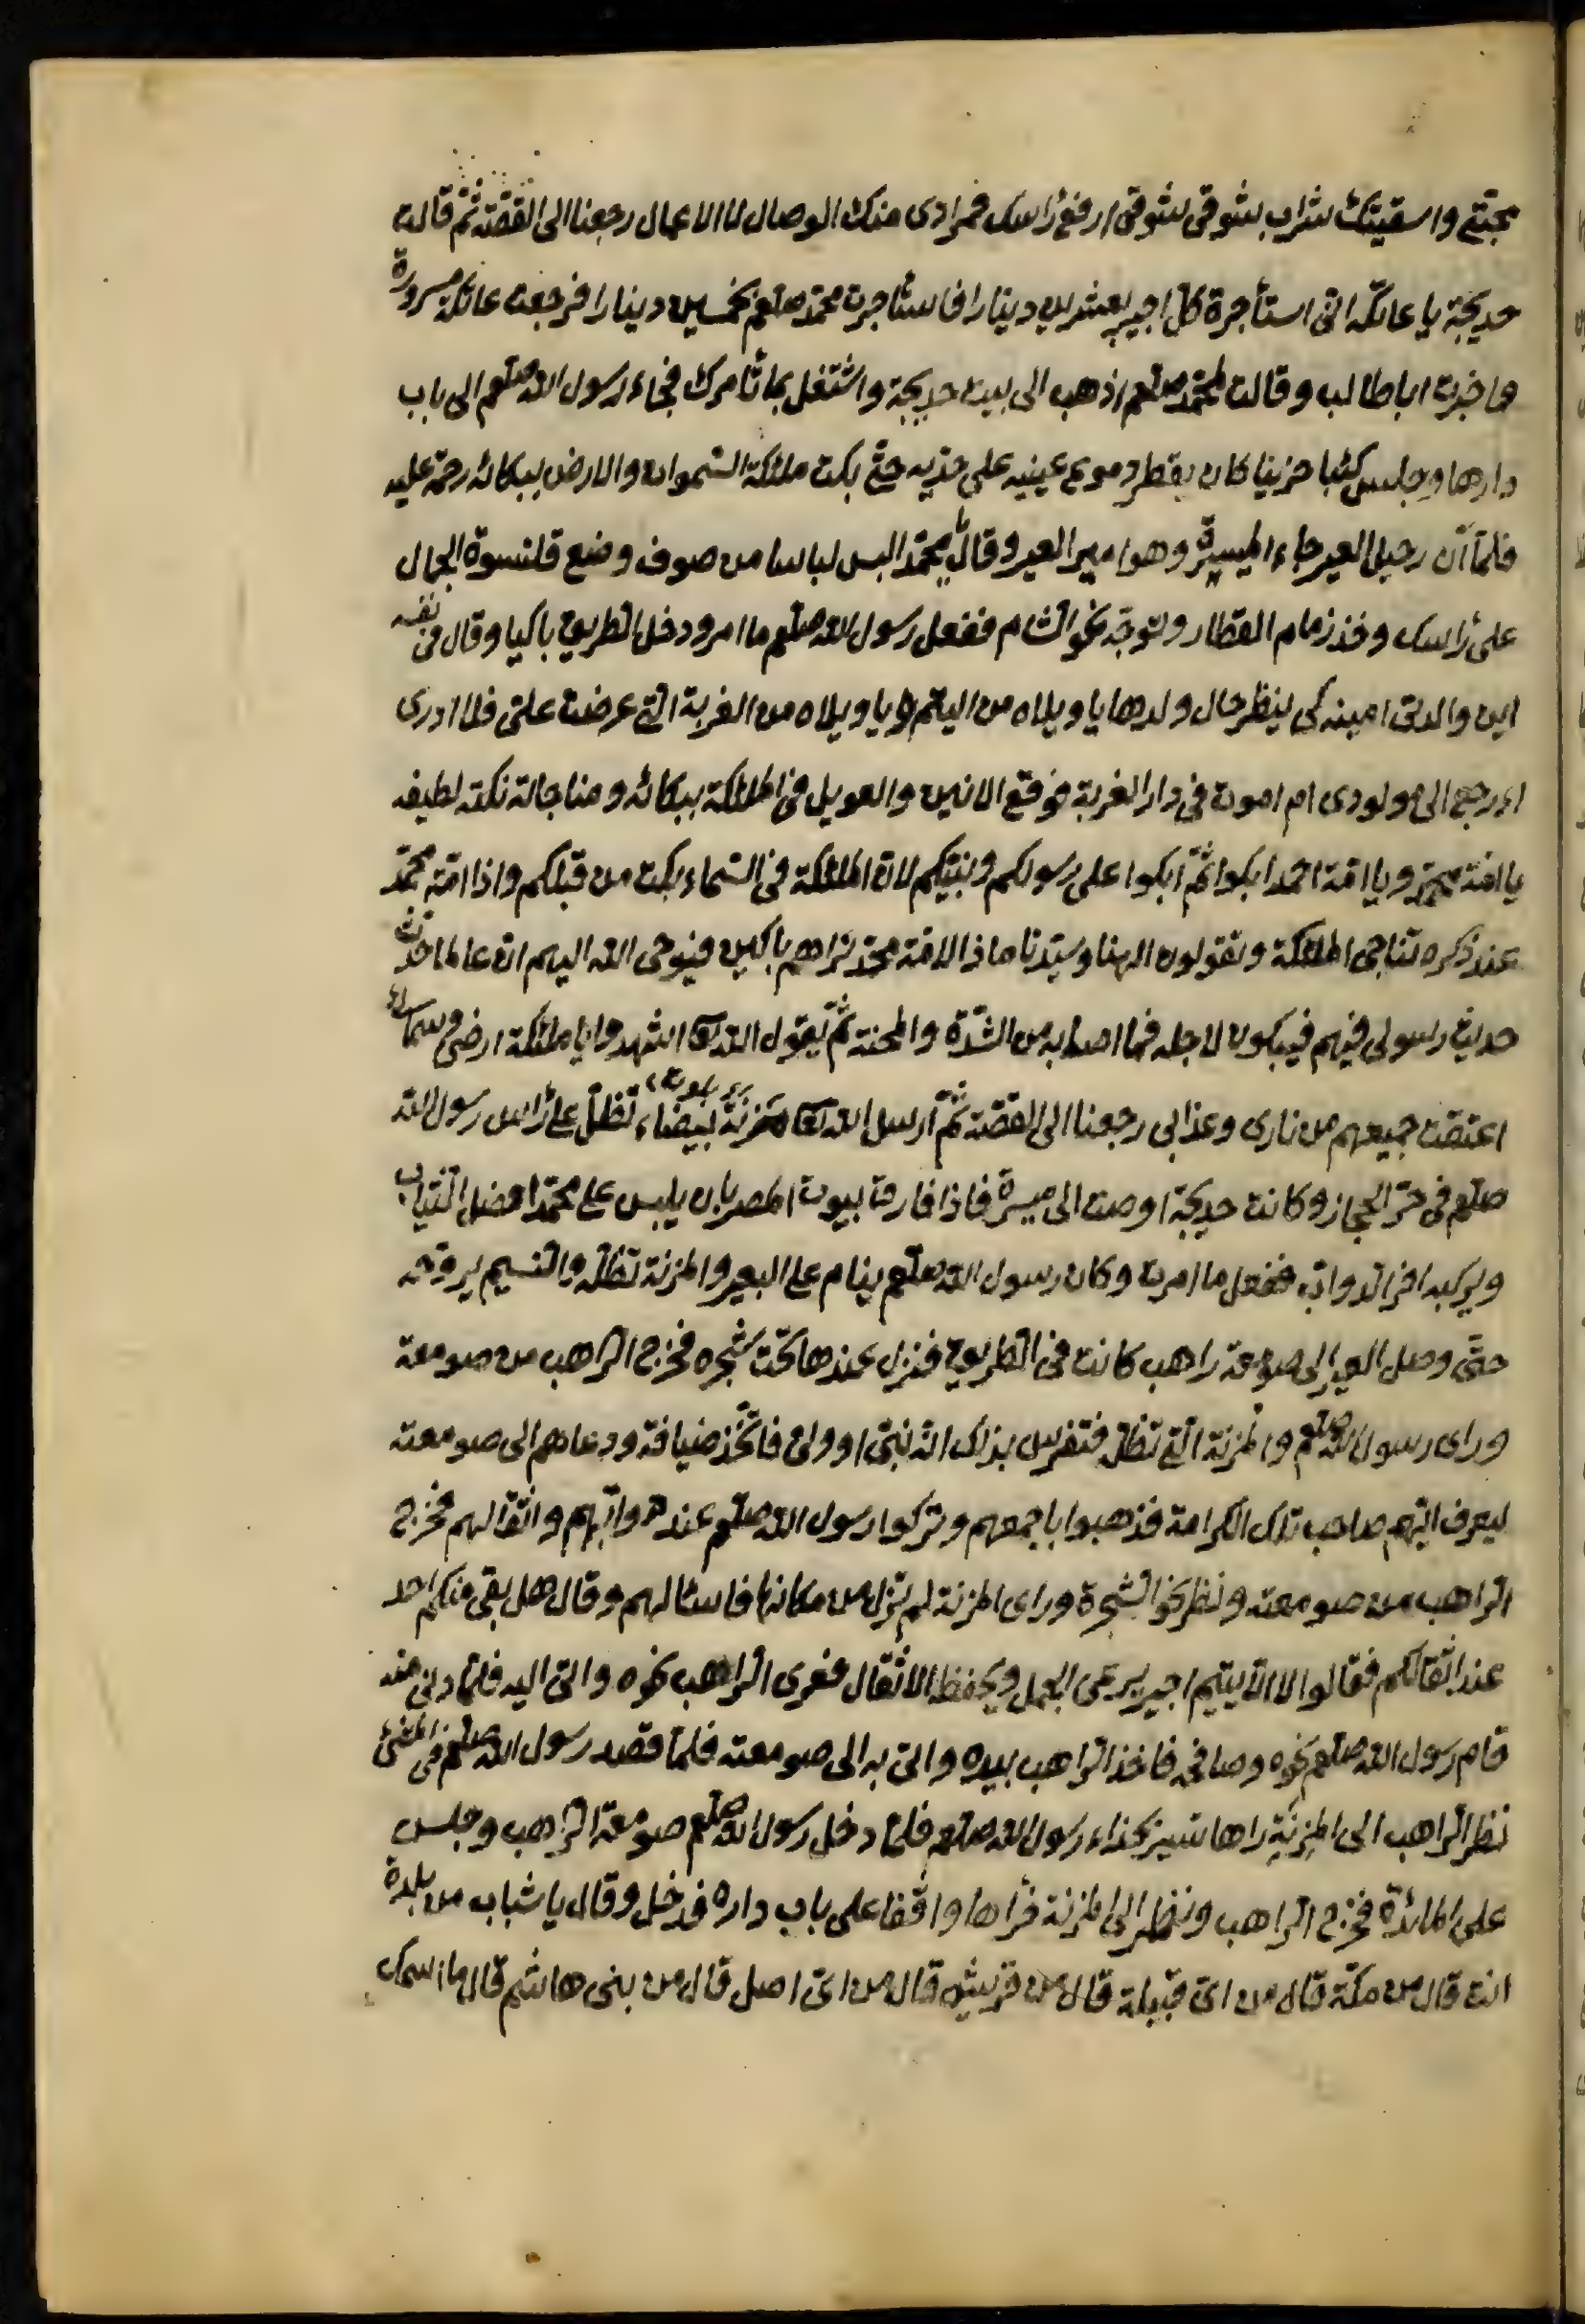 بمحبتي واسقيتك شراب شوقي ارفع رأسك فمرادي منك الوصال لا الاعمال رجعنا الى القصّة ثمّ قالت
خديجة يا عاتكه انى استأجرة كل اجير بعشرين دينارا فاستأجرت محمّد صلعم بخمسين دينارا فرجعت عاتكة مسرورة
واخبرت اباطالب وقالت لمحمّد صلعم اذهب الى بيت خديجة واشتغل بما تأمرك فجاء رسول الله صلعم الى باب
دارها وجلس كئبا حزينا كان يقطر دموع عينيه على خدّيه حتّى بكت ملئكة السّموات والارض ببكائه رحمة عليه
فلمّا آن رحيل العير جاء الميسرة وهو امير العير وقال يا محمّد البس لباسا من صوف وضع قلنسوة الجمال
على رأسك وخذ زمام القطار وتوجّه نحو الشام ففعل رسول الله صلعم ما امر ودخل الطريق باكيا وقال في نفسه
اين والدتى امينه كى ينظر حال ولدها يا ويلاه من اليتم ويا ويلاه من الغربة التى عرضت علىّ فلا ادرى
اارجع الى مولودى ام اموت في دار الغربة فوقع الانين والعويل في الملئكة ببكائه ومناجاته نكته لطيفه
يا امّة محمّد ويا امّة احمد ابكوا ثمّ ابكوا على رسولكم ونبيّكم لان الملئكة فى السّماء بكت من قبلكم واذا امّة محمّد
عند ذكره تناجى الملئكة وتقولون الهنا وسيّدنا ماذا لامّة محمّد نراهم باكين فيوحى الله اليهم ان عالما حدّث
حديث رسولى فيهم فيبكون لاجله فيما اصابه من الشدّة والمحنة ثمّ يقول الله تعا اشهدوا يا ملئكة ارضى وسمائى
اعتقت جميعهم من نارى وعذابى رجعنا الى القصّة ثمّ ارسل الله تعا مزنة بيضاء تظلّ على رأس رسول الله
صلعم فى حرّ الحجاز وكانت خديجة اوصت الى ميسرة فاذا فارقت بيوت المصر بان يلبس على محمّد افضل الثياب
ويركبه افر الدواب ففعل ما امرت وكان رسول الله صلعم ينام على البعير والمزنة تظلّه والنسيم يروّحه
حتّى وصل العير الى صومعة راهب كانت فى الطريق فنزل عندها تحت شجره فخرج الراهب من صومعة
وراى رسول الله صلعم والمزنة التى تظلّه فتفرس بذلك انّه نبىّ او ولىّ فاتّخذ ضيافة ودعاهم الى صومعته
ليعرف ايّهم صاحب تلك الكرامة فذهبوا باجمعهم وتركوا رسول الله صلعم عند دوابّهم واثقالهم فخرج
الراهب من صومعته ونظر نحو الشجرة وراى المزنة لم تزل من مكانها فاسئالهم وقال هل بقى منكم احد
عند اثقالكم فقالوا لا الا يتيم اجير يرعى الجمل ويحفظ الاثقال فعرى الراهب نحوه واتى اليه فلمّا دنى منه
قام رسول الله صلعم نحوه وصافحه فاخذ الراهب بيده واتى به الى صومعته فلمّا قصد رسول الله صلعم فى المشى
نظر الراهب الى المزنة راها تسير بحذاء رسول الله صلعم فلمّا دخل رسول الله صلعم صومعة الراهب وجلس
على المائدة فخرج الراهب ونظر الى المزنة فرأها واقفا على باب داره فدخل وقال يا شباب من بلدة
انت قال من مكّة قال من اىّ قبيلة قال من قريش قال من اىّ اصل قال من بنى هاشم قال ما اسمك